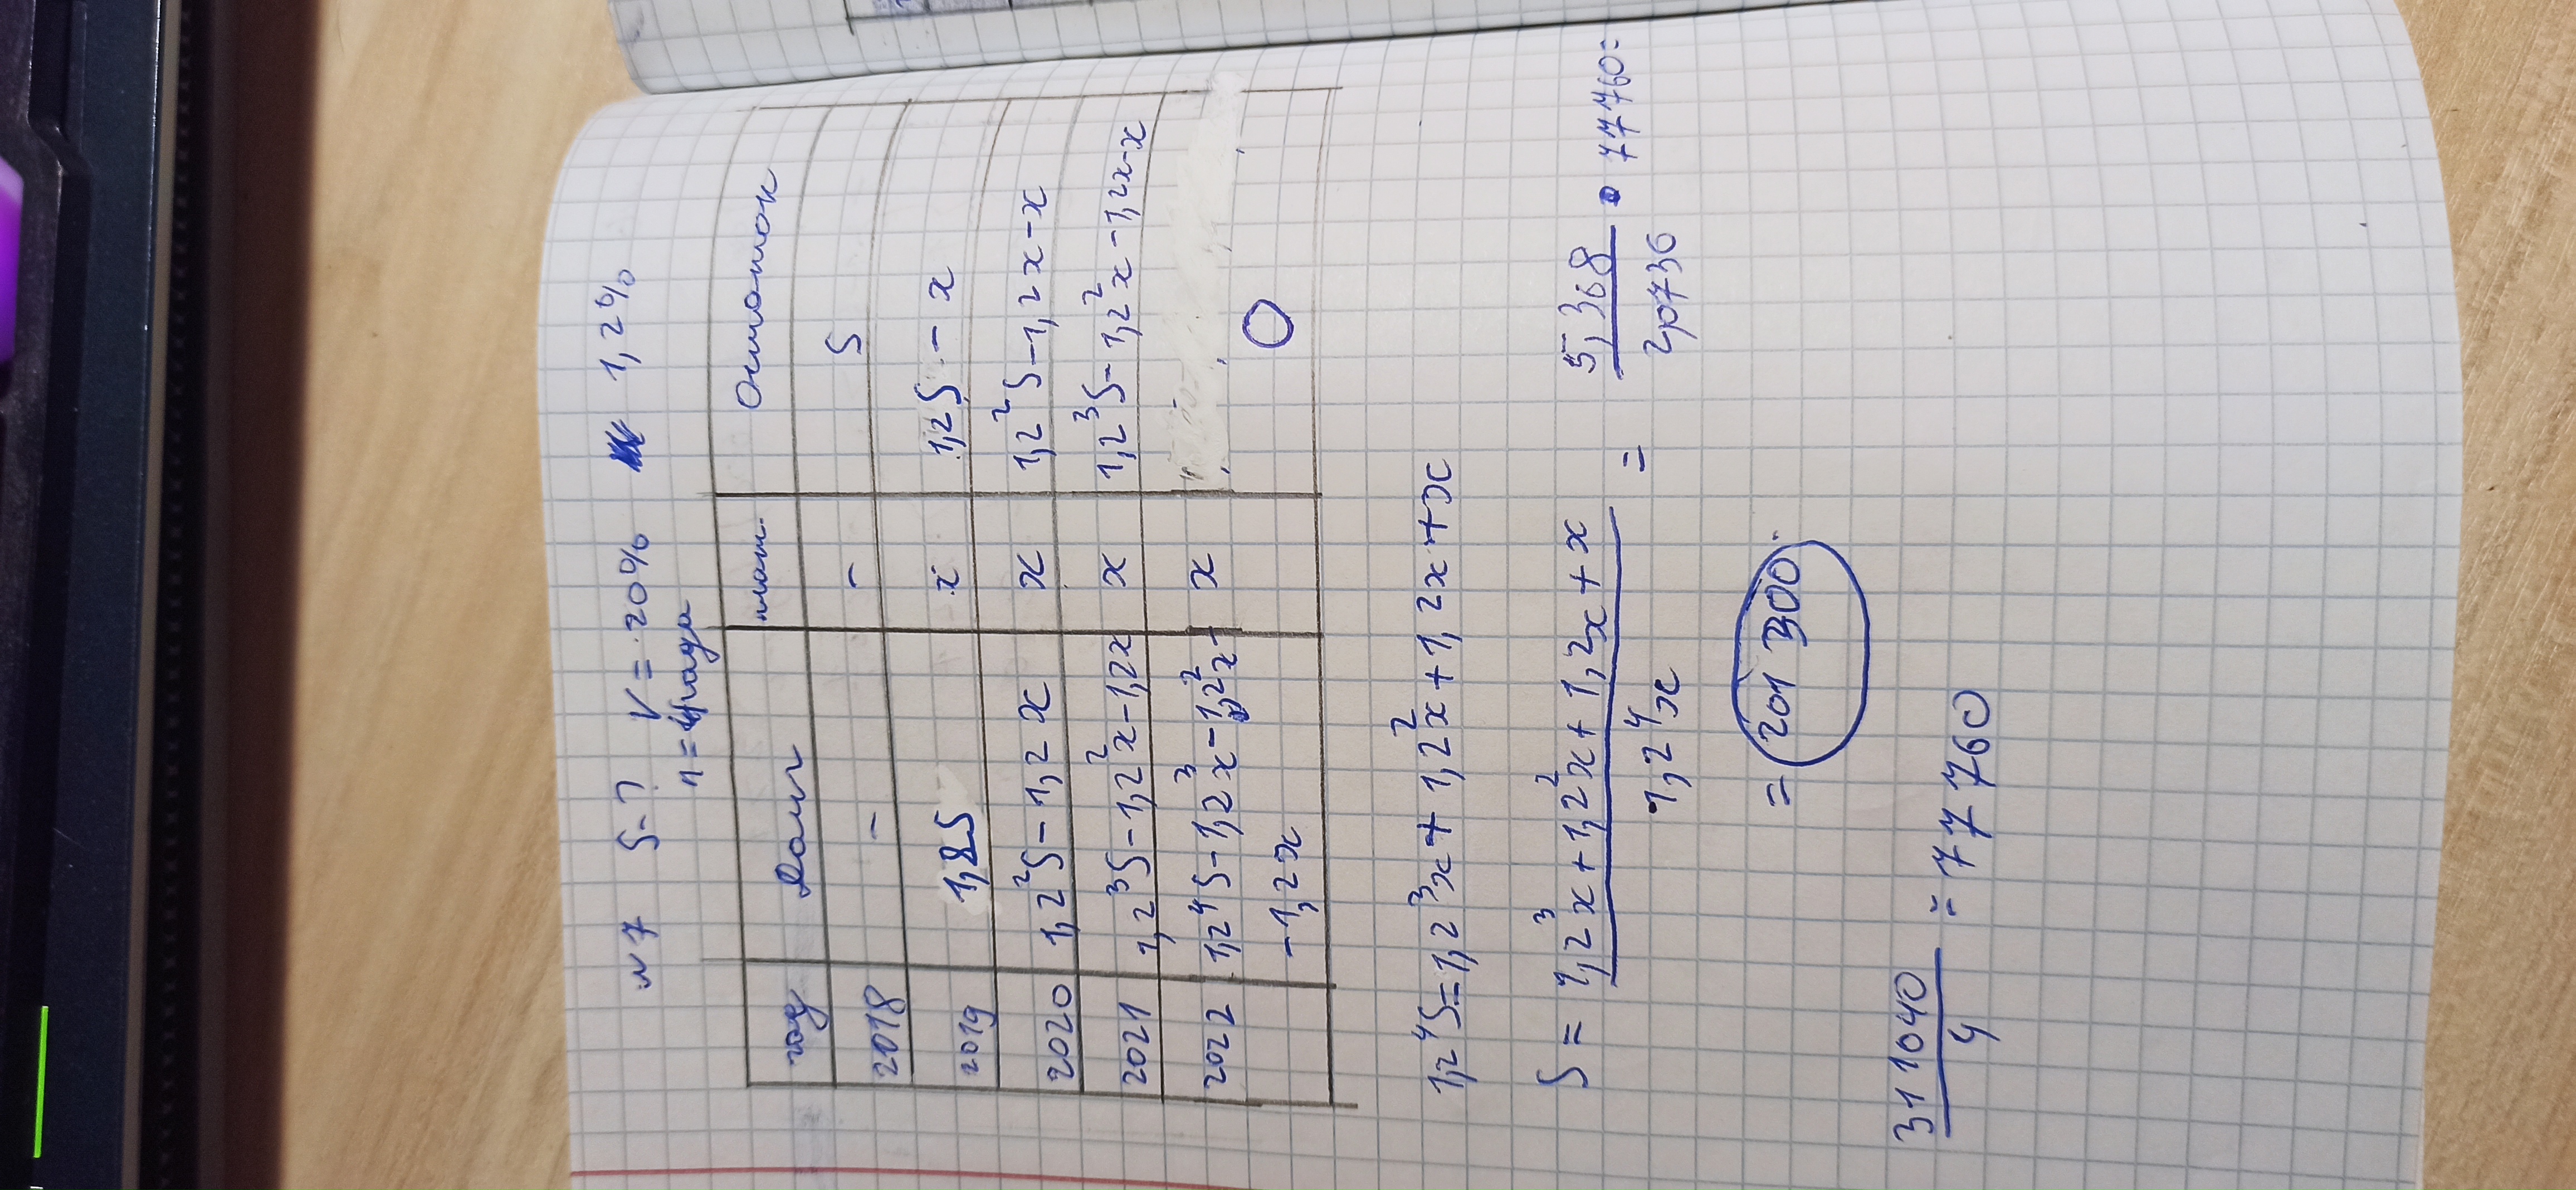 №7 S-? V=20% 1,2%
n=4года
год Долг плат. Остаток
2018 - - S
2019 1,2S x 1,2S-x
2020 1,2²S-1,2x x 1,2²S-1,2x-x
2021 1,2³S-1,2²x-1,2x x 1,2³S-1,2²x-1,2x-x
2022 1,2⁴S-1,2³x-1,2²x- x
-1,2x 0
1,2⁴S=1,2³x+1,2²x+1,2x+x
S = (1,2³x+1,2²x+1,2x+x)/(1,2⁴x) = 5,368/2,0736 · 77760=
= 201 300
311040/4 = 77760